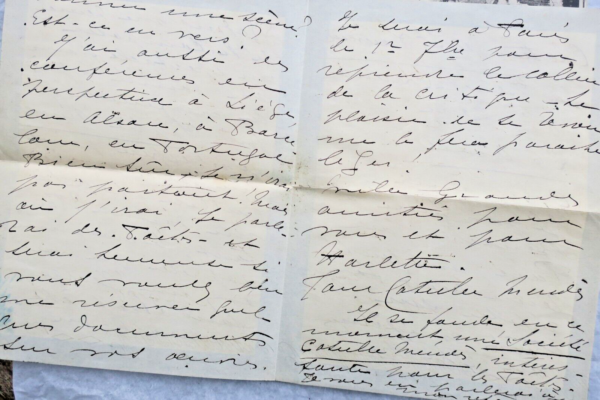 donner une scène?
Est-ce en vers?
J'ai aussi des
conférences en
perspective à Liège
en Alsace, à Barce
lone, en Portugal
Bien sûr je n'irai
pas partout, mais
où j'irai je parle-
rai des Poètes - et
serai heureuse si
vous voulez bien
me réserver quel
ques documents
sur vos œuvres.
Je serai à Paris
le 1er 7bre pour
reprendre le collier
de la critique - Le
plaisir de se revoir
me le fera paraître
léger!
Mille grandes
amitiés pour
vous et pour
Harlette.
Jane Catulle Mendès
Il se fonde en ce
moment une Société
Catulle Mendès, intéres-
sante pour les Poètes